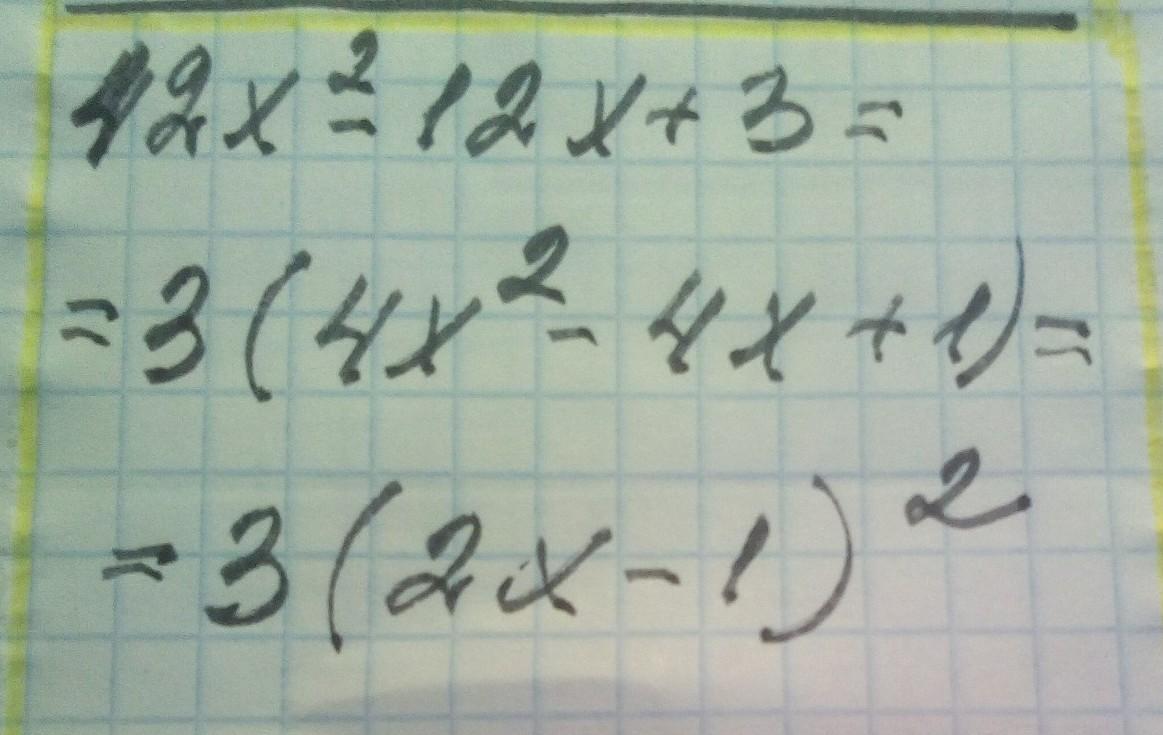 12x² - 12x + 3 =
= 3 (4x² - 4x + 1) =
= 3 (2x - 1)²